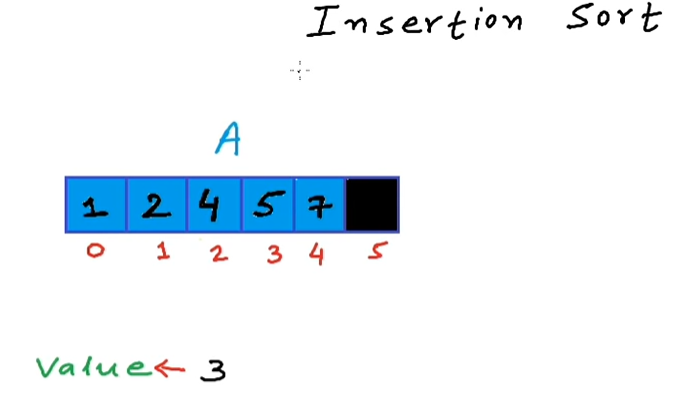 Insertion Sort
A
1 2 4 5 7
0 1 2 3 4 5
Value ← 3